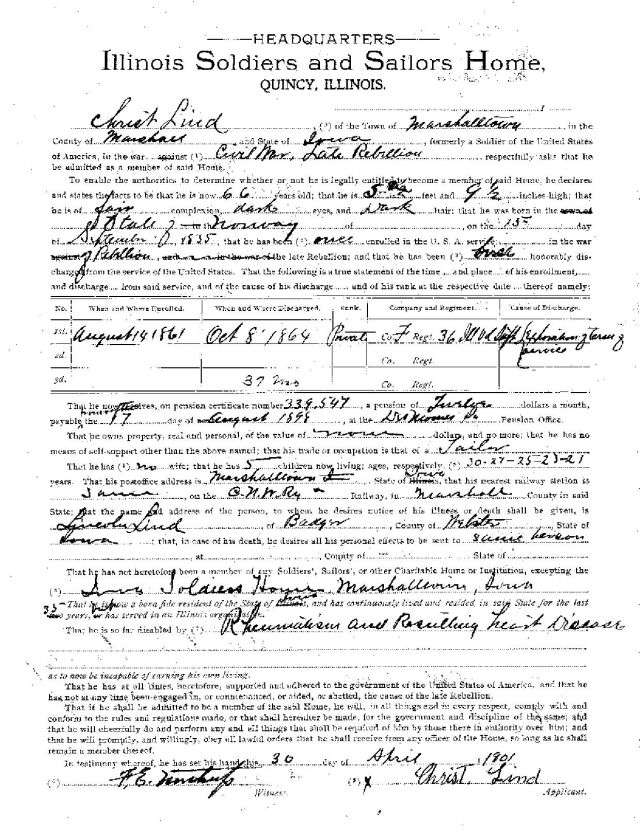 HEADQUARTERS
Illinois Soldiers and Sailors Home,
QUINCY, ILLINOIS.
Christ Lind (²) of the Town of Marshalltown in the
County of Marshall and State of Iowa, formerly a Soldier of the United States
of America, in the war against (¹) Civil War, Late Rebellion respectfully asks that he
be admitted as a member of said Home.
To enable the authorities to determine whether or not he is legally entitled to become a member of said Home, he declares
and states the facts to be that he is now 66 years old; that he is 5 feet and 9½ inches high; that
he is of complexion, dark eyes, and Dark hair: that he was born in the town of
in Norway of , on the 15 day
of September 1835, that he has been (¹) once enrolled in the U. S. A. service in the war
against of Rebellion the late Rebellion; and that he has been (²) honorably dis-
charged from the service of the United States. That the following is a true statement of the time and place of his enrollment,
and discharge from said service, and of the cause of his discharge and of his rank at the respective date thereof namely:
No. When and Where Enrolled. When and Where Discharged. Rank. Company and Regiment. Cause of Discharge.
1st. August 14 1861 Oct 8 1864 Private Co. F Regt. 36 Ill Vol Inft Expiration of term of service
2d. Co. Regt.
3d. 37 mos Co. Regt.
That he now receives, on pension certificate number 339,547, a pension of Twelve dollars a month,
payable from the 17 day of August 1898, at the Des Moines Pension Office.
That he owns property, real and personal, of the value of none dollars, and no more; that he has no
means of self-support other than the above named; that his trade or occupation is that of a Tailor
That he has (¹) no wife; that he has 5 children now living; ages, respectively, (²) 30-27-25-23-21
years. That his postoffice address is Marshalltown State of Illinois, Iowa that his nearest railway station is
Same, on the C. N. W. Ry Railway, in Marshall County in said
State; that the name and address of the person, to whom he desires notice of his illness or death shall be given, is
Lincoln Lind of Badger, County of Webster, State of
Iowa; that, in case of his death, he desires all his personal effects to be sent to same person
at , County of State of
That he has not heretofore been a member of any Soldiers', Sailors', or other Charitable Home or Institution, excepting the
(¹) Iowa Soldiers Home, Marshalltown, Iowa
35 That he is now a bona fide resident of the State of Illinois, Iowa and has continuously lived and resided in said State for the last
two years, or has served in an Illinois organization.
That he is so far disabled by (¹) Rheumatism and Resulting heart Disease
as to now be incapable of earning his own living.
That he has at all times, heretofore, supported and adhered to the government of the United States of America, and that he
has not at any time been engaged in, or countenanced, or aided, or abetted, the cause of the late Rebellion.
That if he shall be admitted to be a member of the said Home, he will, in all things and in every respect, comply with and
conform to the rules and regulations made, or that shall hereafter be made, for the government and discipline of the same; and
that he will cheerfully do and perform any and all things that shall be required of him by those there in authority over him; and
that he will promptly, and willingly, obey all lawful orders that he shall receive from any officer of the Home, so long as he shall
remain a member thereof.
In testimony whereof, he has set his hand this 30 day of April 1901
(²) F. E. (²) X Christ Lind
Witness. Applicant.